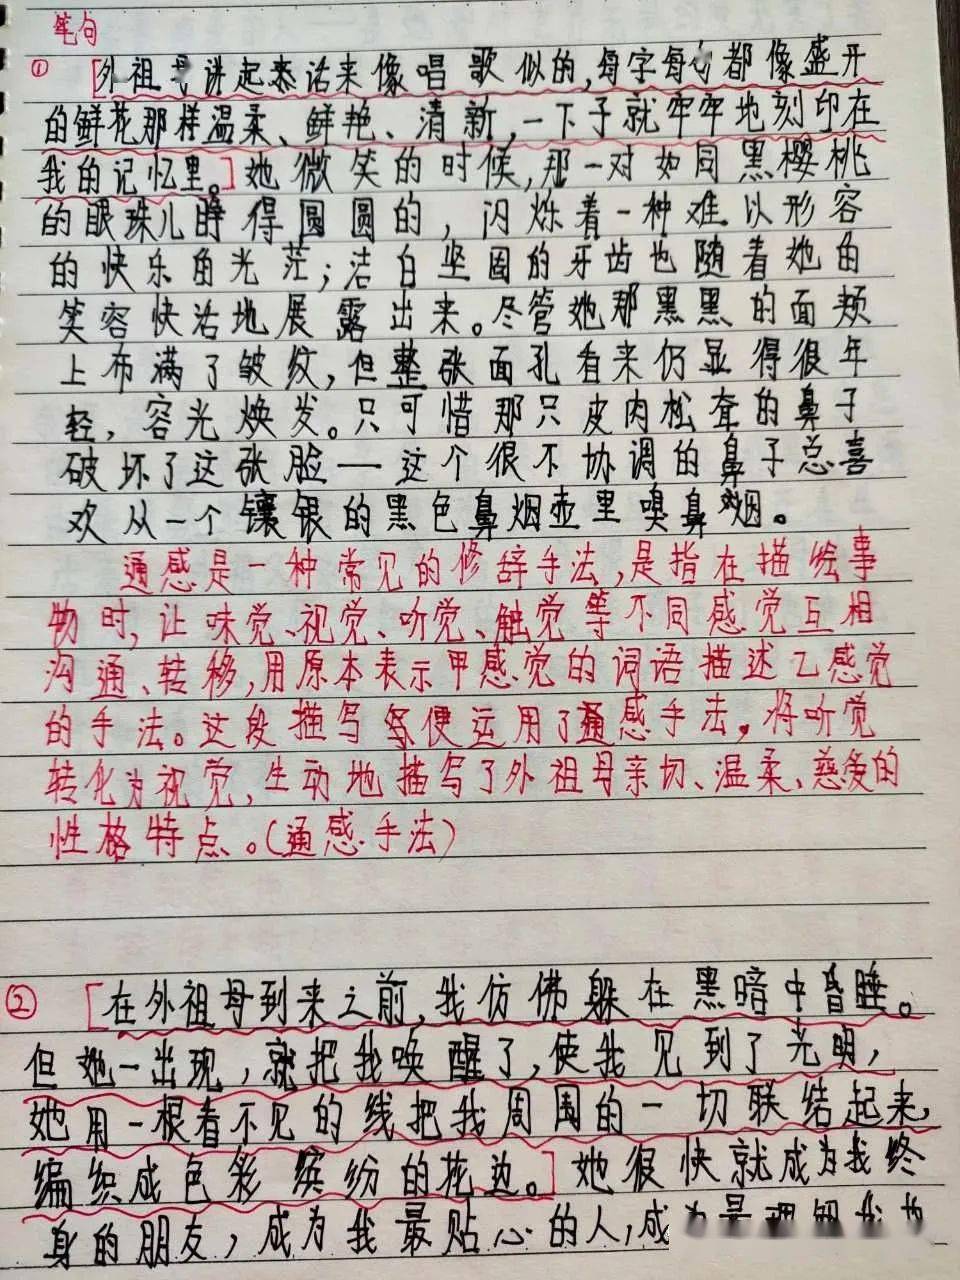 笔句
① [外祖母讲起来话来像唱歌似的,每字每句都像盛开
的鲜花那样温柔、鲜艳、清新,一下子就牢牢地刻印在
我的记忆里。]她微笑的时候,那一对如同黑樱桃
的眼珠儿睁得圆圆的,闪烁着一种难以形容
的快乐的光茫;洁白坚固的牙齿也随着她的
笑容快活地展露出来。尽管她那黑黑的面颊
上布满了皱纹,但整张面孔看来仍显得很年
轻,容光焕发。只可惜那只皮肉松耷的鼻子
破坏了这张脸——这个很不协调的鼻子总喜
欢从一个镶银的黑色鼻烟壶里嗅鼻烟。
通感是一种常见的修辞手法,是指在描绘事
物时,让味觉、视觉、听觉、触觉等不同感觉互相
沟通、转移,用原本表示甲感觉的词语描述乙感觉
的手法。这段描写便运用了通感手法,将听觉
转化为视觉,生动地描写了外祖母亲切、温柔、慈爱的
性格特点。(通感手法)
② [在外祖母到来之前,我仿佛躲在黑暗中昏睡。
但她一出现,就把我唤醒了,使我见到了光明,
她用一根看不见的线把我周围的一切联结起来,
编织成色彩缤纷的花边。]她很快就成为我终
身的朋友,成为我最贴心的人,成